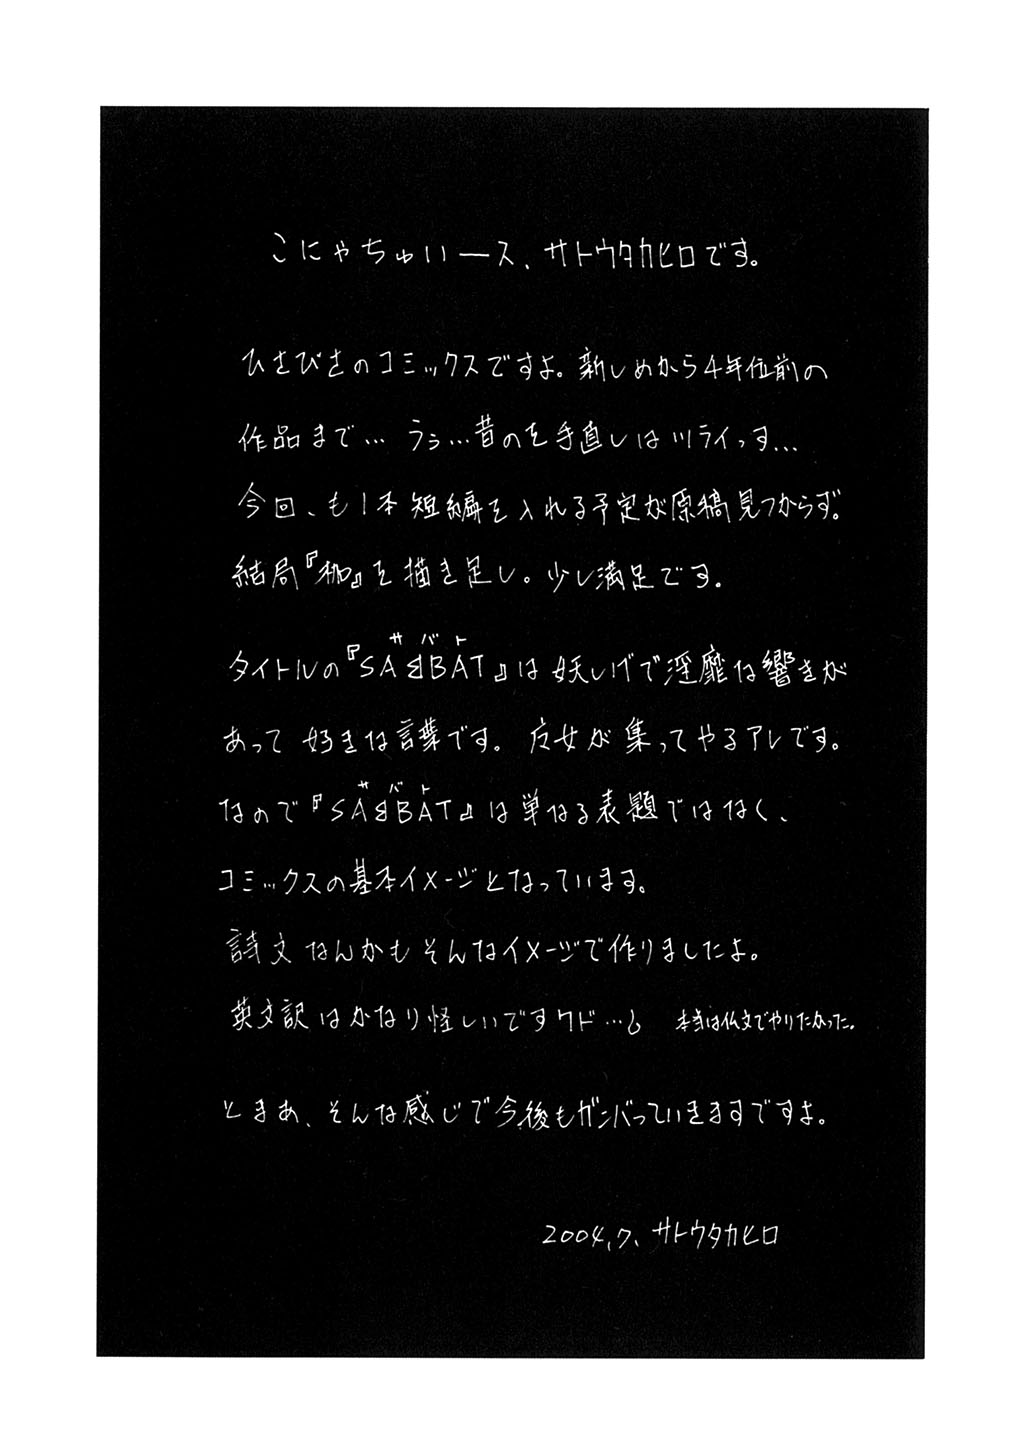 こにゃちゅいース、サトウタカヒロです。
ひさびさのコミックスですよ。新しめから4年位前の
作品まで… うぅ…昔のを手直しはツライっす…
今回、も1本短編を入れる予定が原稿見つからず。
結局『枷』を描き足し。少し満足です。
サバト
タイトルの『SABBAT』は妖しげで淫靡な響きが
あって好きな言葉です。女が集ってやるアレです。
サバト
なので『SABBAT』は単なる表題ではなく、
コミックスの基本イメージとなっています。
詩文なんかもそんなイメージで作りましたよ。
英文訳はかなり怪しいですケド… 本当は仏文でやりたかった。
とまあ、そんな感じで今後もガンバっていきますですよ。
2004,7、サトウタカヒロ